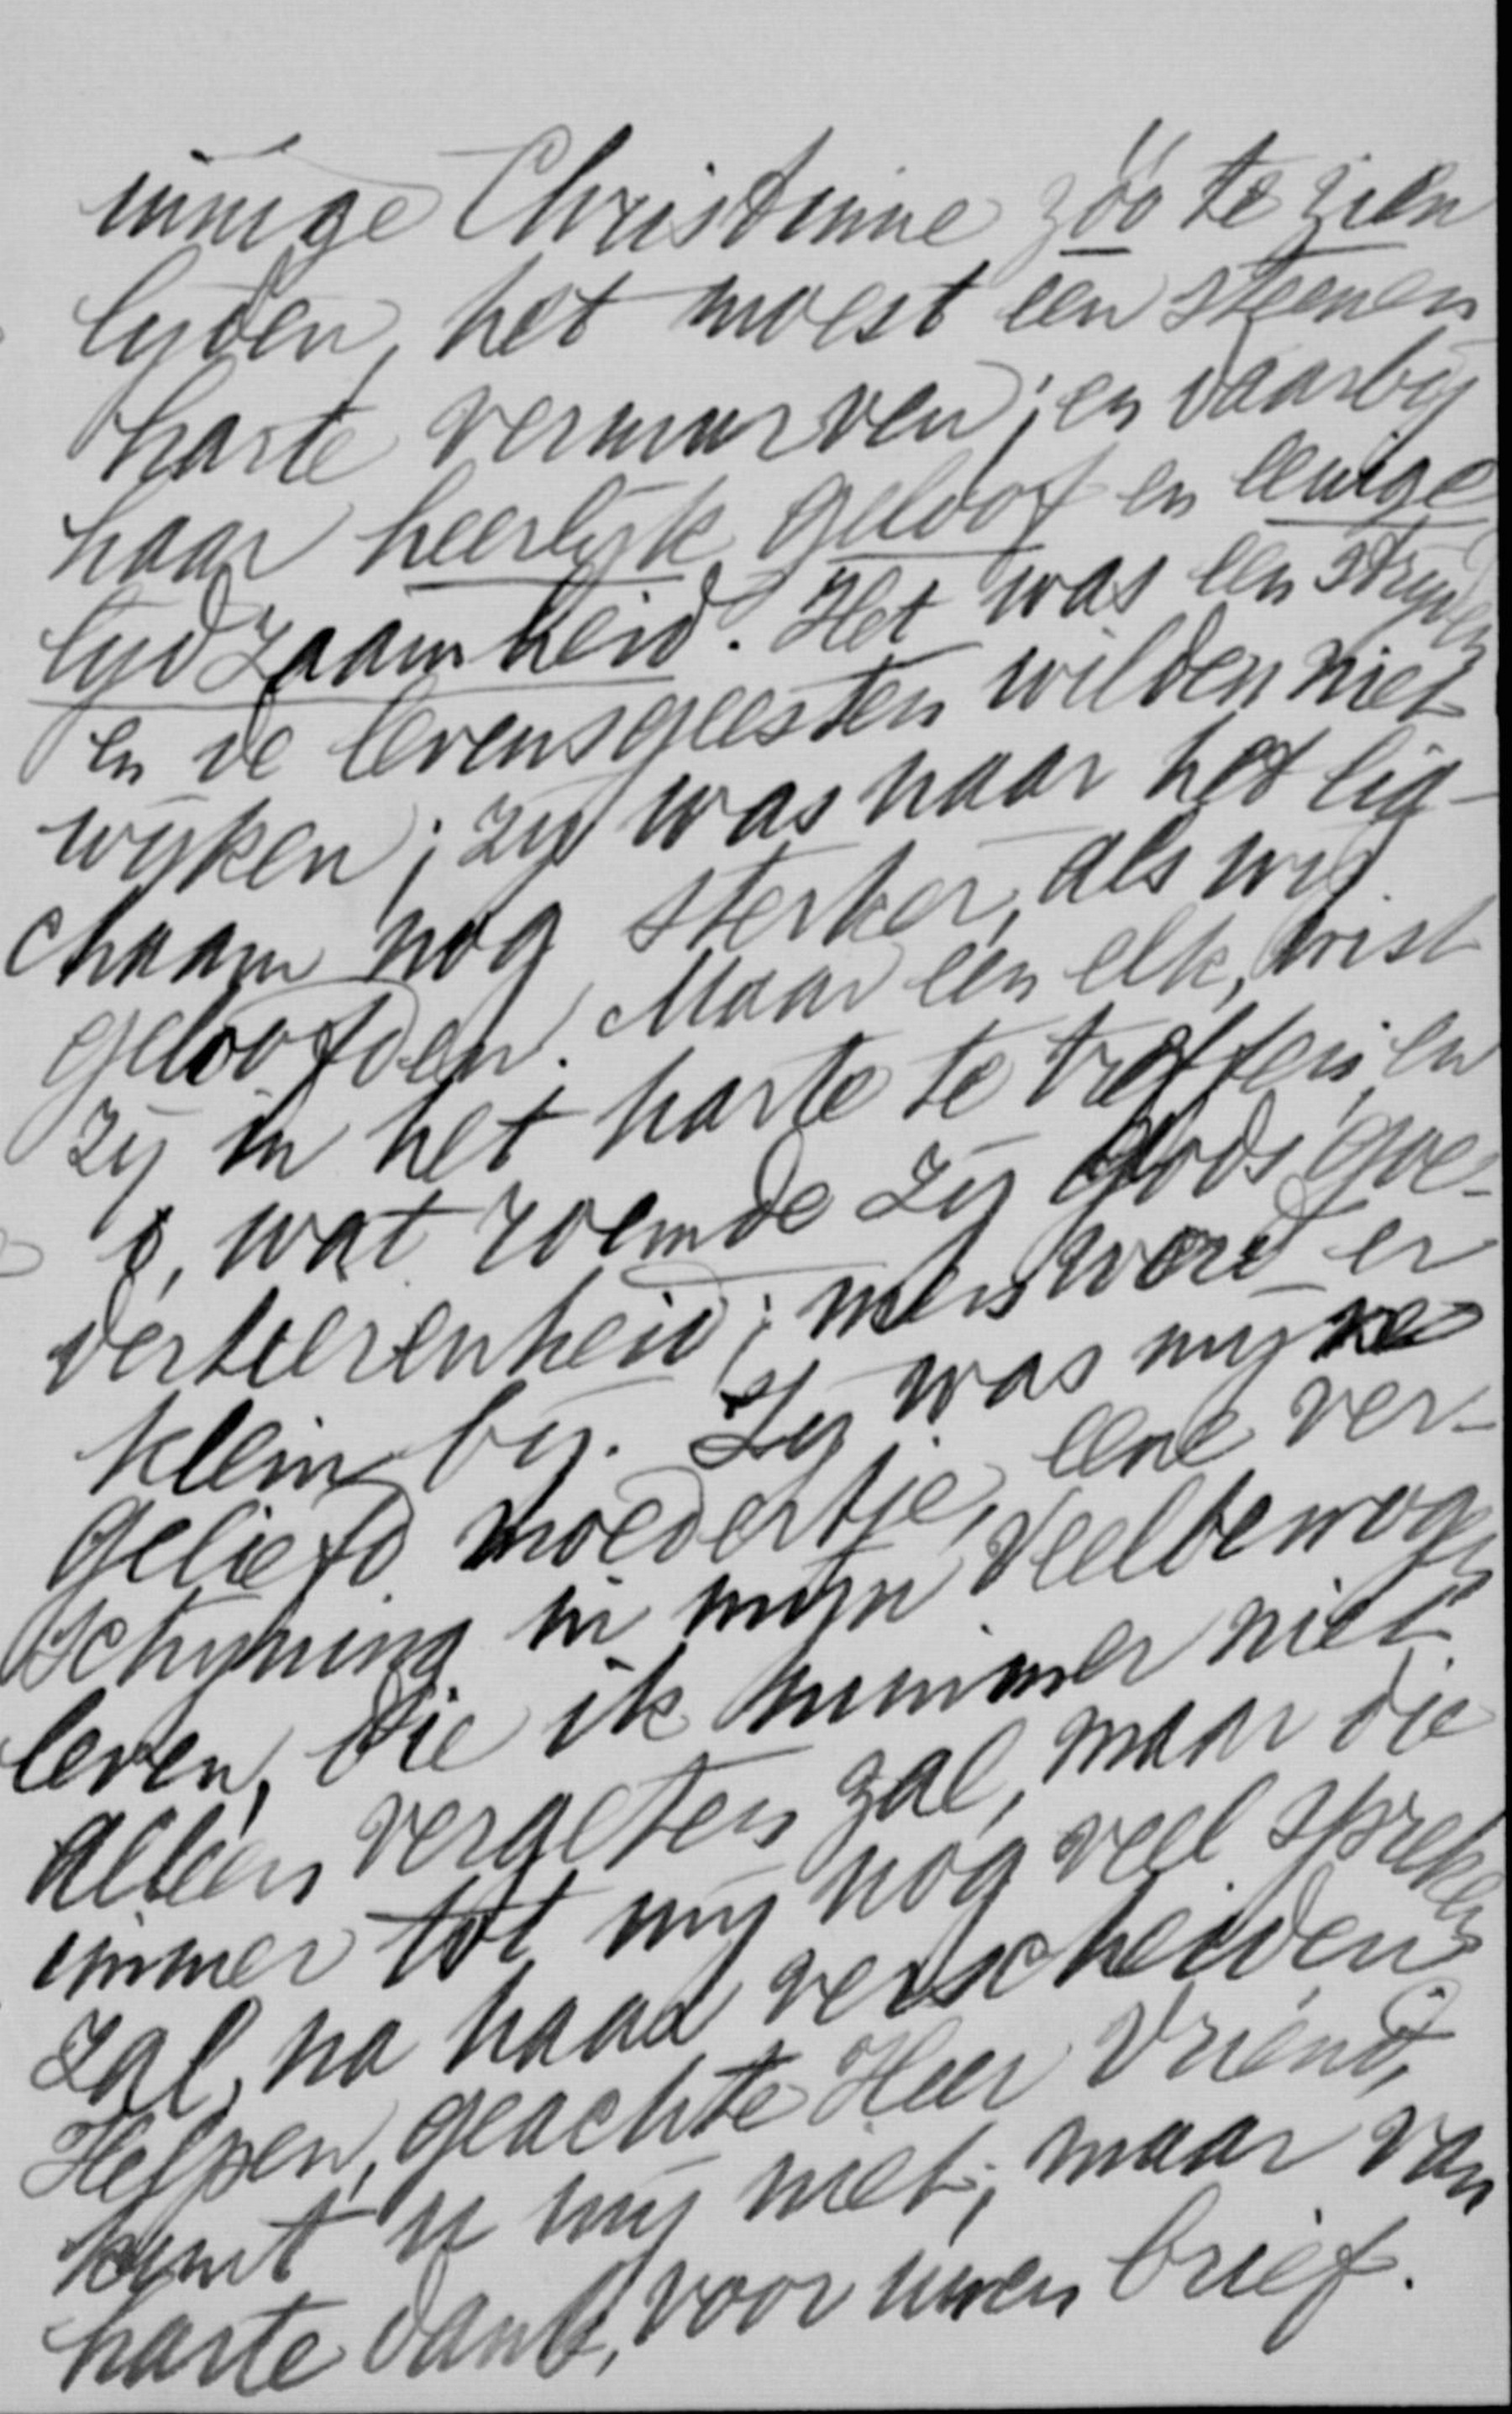 innige Christinne zóó te zien
lijden, het moest een steenen
harte vermurven; en daarbij
haar heerlijk geloof en eenige
lijdzaamheid. Het was een strijden
en de levensgeesten wilden niet
wijken; zij was naar het lig-
chaam nog sterker, als wij
geloofden. Maar een elk, wist
zij in het harte te treffen, en
ó, wat roemde zij Gods goe-
dertierenheid; men werd er
klein bij. Zij was mij
geliefd moedertje, eene ver-
schijning in mijn veelbewogen
leven, die ik nimmer niet
alleen vergeten zal, maar die
immer tot mij nog veel spreken
zal, na haar verscheiden
Helpen, geachte Heer Vriend,
kunt u mij niet; maar van
harte dank, voor uwen brief.